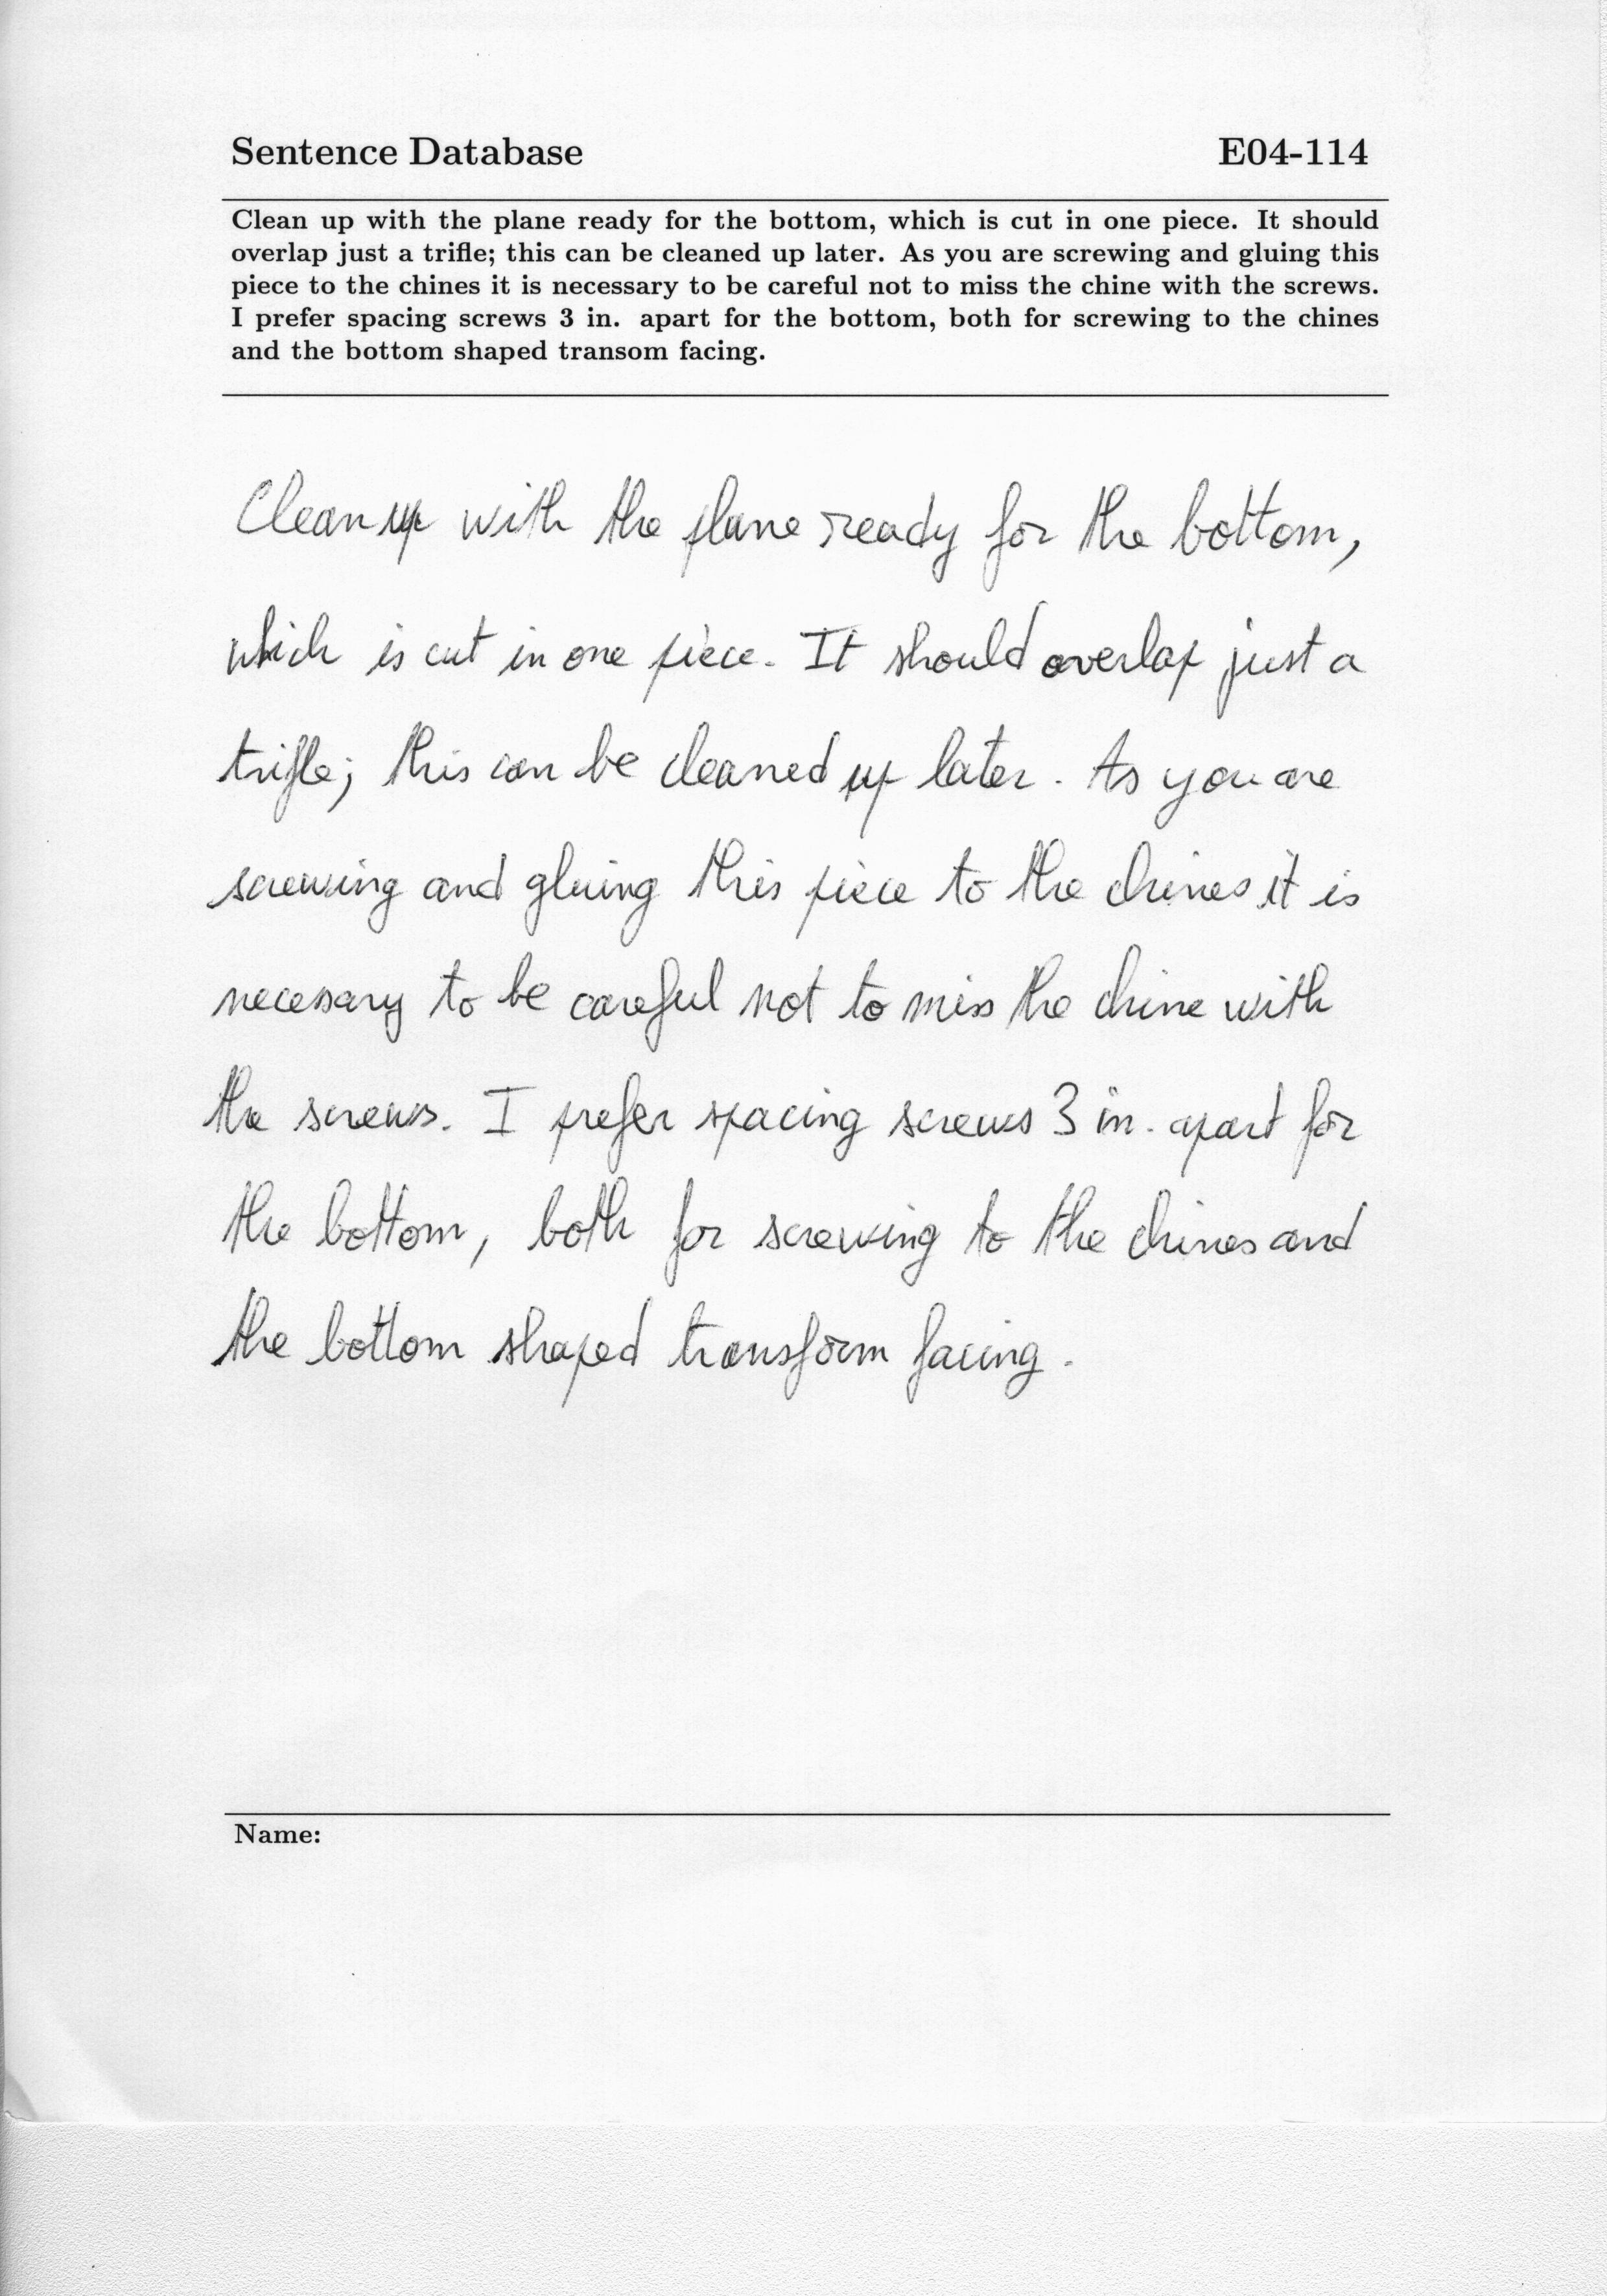 Sentence Database E04-114
Clean up with the plane ready for the bottom, which is cut in one piece. It should
overlap just a trifle; this can be cleaned up later. As you are screwing and gluing this
piece to the chines it is necessary to be careful not to miss the chine with the screws.
I prefer spacing screws 3 in. apart for the bottom, both for screwing to the chines
and the bottom shaped transom facing.
Clean up with the plane ready for the bottom,
which is cut in one piece. It should overlap just a
trifle; this can be cleaned up later. As you are
screwing and gluing this piece to the chines it is
necessary to be careful not to miss the chine with
the screws. I prefer spacing screws 3 in. apart for
the bottom, both for screwing to the chines and
the bottom shaped transform facing.
Name: